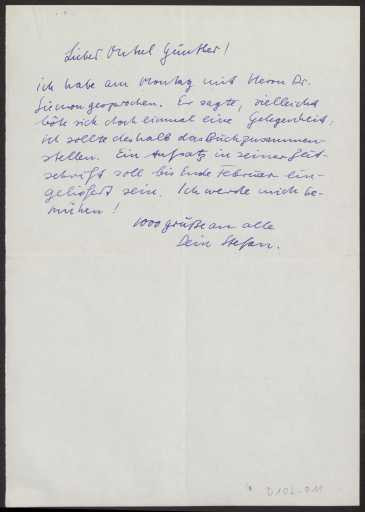 Lieber Onkel Günther!
ich habe am Montag mit Herrn Dr.
Simon gesprochen. Er sagte, vielleicht
böte sich doch einmal eine Gelegenheit,
ich sollte deshalb das Buch zusammen-
stellen. Ein Aufsatz in seiner Zeit-
schrift soll bis Ende Februar ein-
geliefert sein. Ich werde mich be-
mühen!
1000 Grüße an alle
Dein Stefan.
D102-011